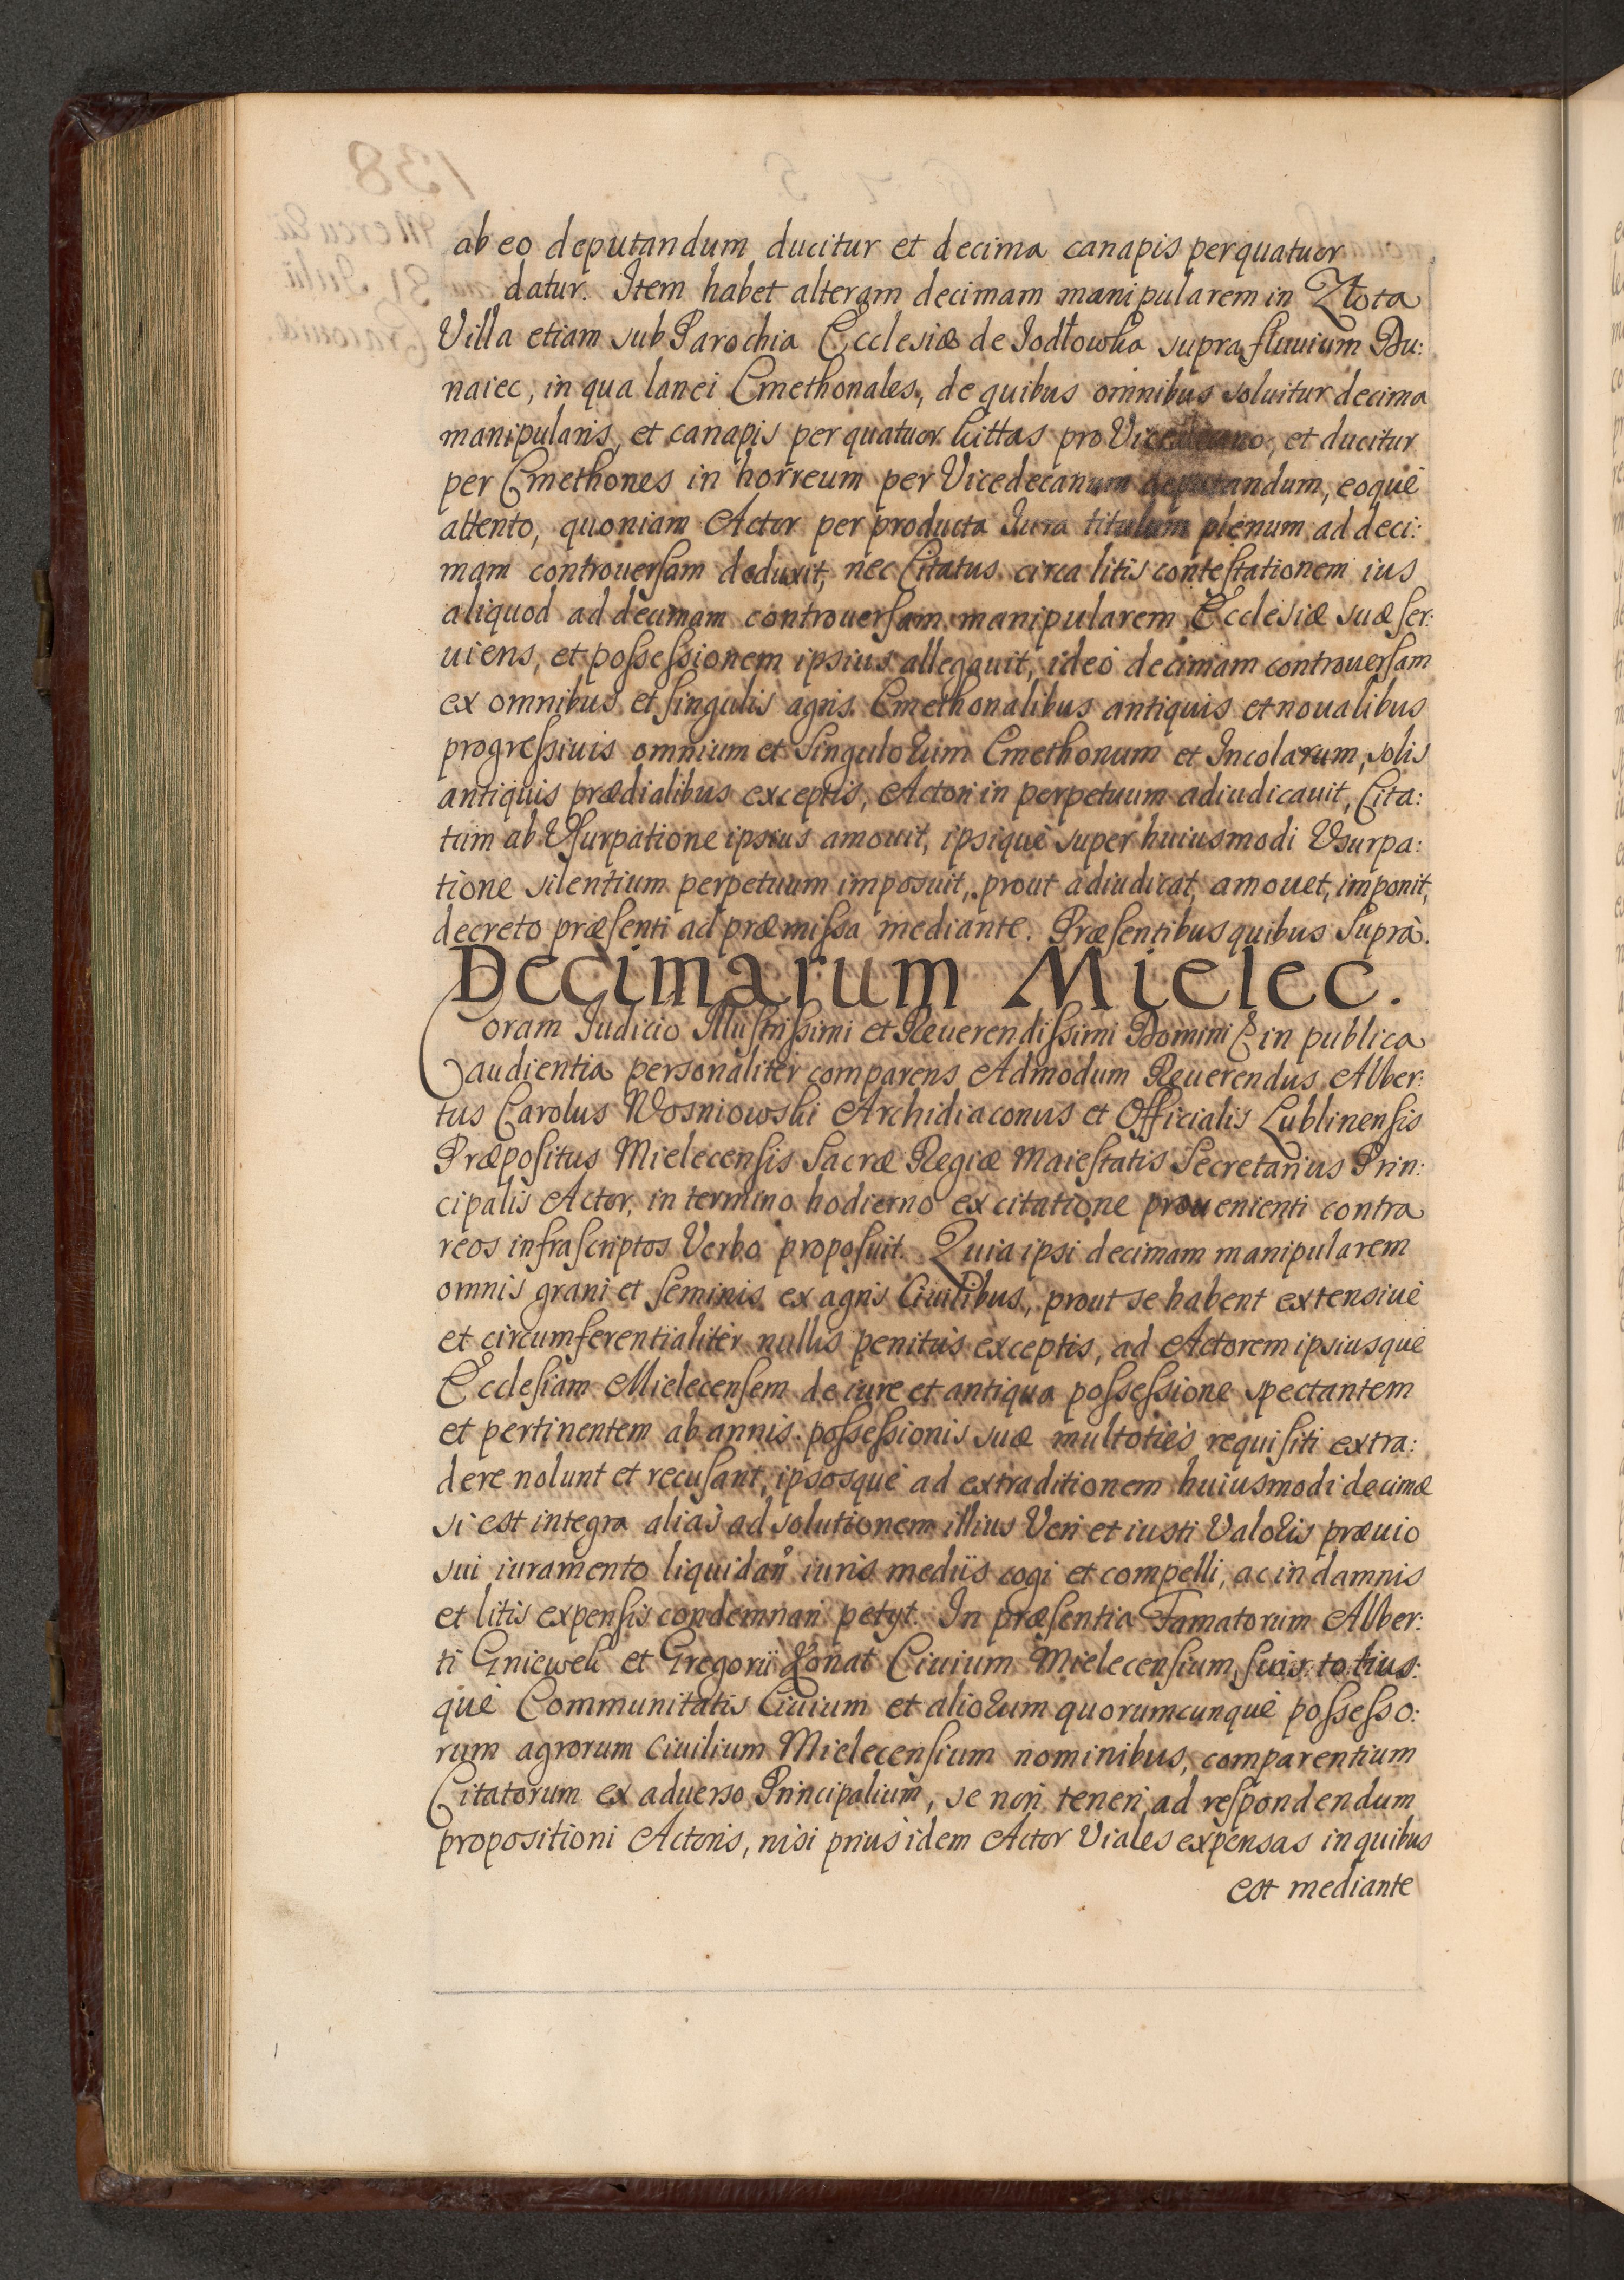 ab eo deputandum ducitur et decima canapis per quatuor
datur. Item habet alteram decimam manipularem in Złota
Villa etiam sub Parochia Ecclesiæ de Jodłowka supra fluuium Du:
naiec, in qua lanei Cmethonales, de quibus omnibus soluitur decima
manipularis, et canapis per quatuor kittas pro Vicedecano, et ducitur
per Cmethones in horreum per Vicedecanum deputandum, eoque
attento, quoniam Actor per producta Iura titulum plenum ad deci:
mam controuersam deduxit, nec Citatus circa litis contestationem ius
aliquod ad decimam controuersam manipularem Ecclesiæ suæ ser:
uiens, et possessionem ipsius allegauit, ideò decimam controuersam
ex omnibus et singulis agris Cmethonalibus antiquis et noualibus
progressiuis omnium et Singulorum Cmethonum et Incolarum, solis
antiquis prædialibus exceptis, Actori in perpetuum adiudicauit, Cita:
tum ab Vsurpatione ipsius amouit, ipsique super huiusmodi Vsurpa:
tione silentium perpetuum imposuit, prout adiudicat, amouet, imponit,
decreto præsenti ad præmissa mediante. Præsentibus quibus Suprà.
Decimarum Mielec.
Coram Iudicio Illustrissimi et Reuerendissimi Domini & in publica
audientia personalitèr comparens Admodum Reuerendus Alber:
tus Carolus Wosniowski Archidiaconus et Officialis Lublinensis
Præpositus Mielecensis Sacræ Regiæ Maiestatis Secretarius Prin:
cipalis Actor, in termino hodierno ex citatione prouenienti contra
reos infrascriptos Verbo proposuit. Quia ipsi decimam manipularem
omnis grani et seminis ex agris Ciuilibus, prout se habent extensiuè
et circumferentialitèr nullis penitùs exceptis, ad Actorem ipsiusque
Ecclesiam Mielecensem de iure et antiqua possessione spectantem
et pertinentem ab annis possessionis suæ multotiès requisiti extra:
dere nolunt et recusant, ipsosque ad extraditionem huiusmodi decimæ
si est integra aliàs ad solutionem illius Veri et iusti Valoris præuio
sui iuramento liquidań iuris mediis cogi et compelli, ac in damnis
et litis expensis condemnari petyt. In præsentia Famatorum Alber:
ti Gniewek et Gregorii Konat Ciuium Mielecensium, suis totius:
que Communitatis Ciuium et aliorum quorumcunque possesso:
rum agrorum Ciuilium Mielecensium nominibus, comparentium
Citatorum ex aduerso Principalium, se non teneri ad respondendum
propositioni Actoris, nisi prius idem Actor Viales expensas in quibus
est mediante